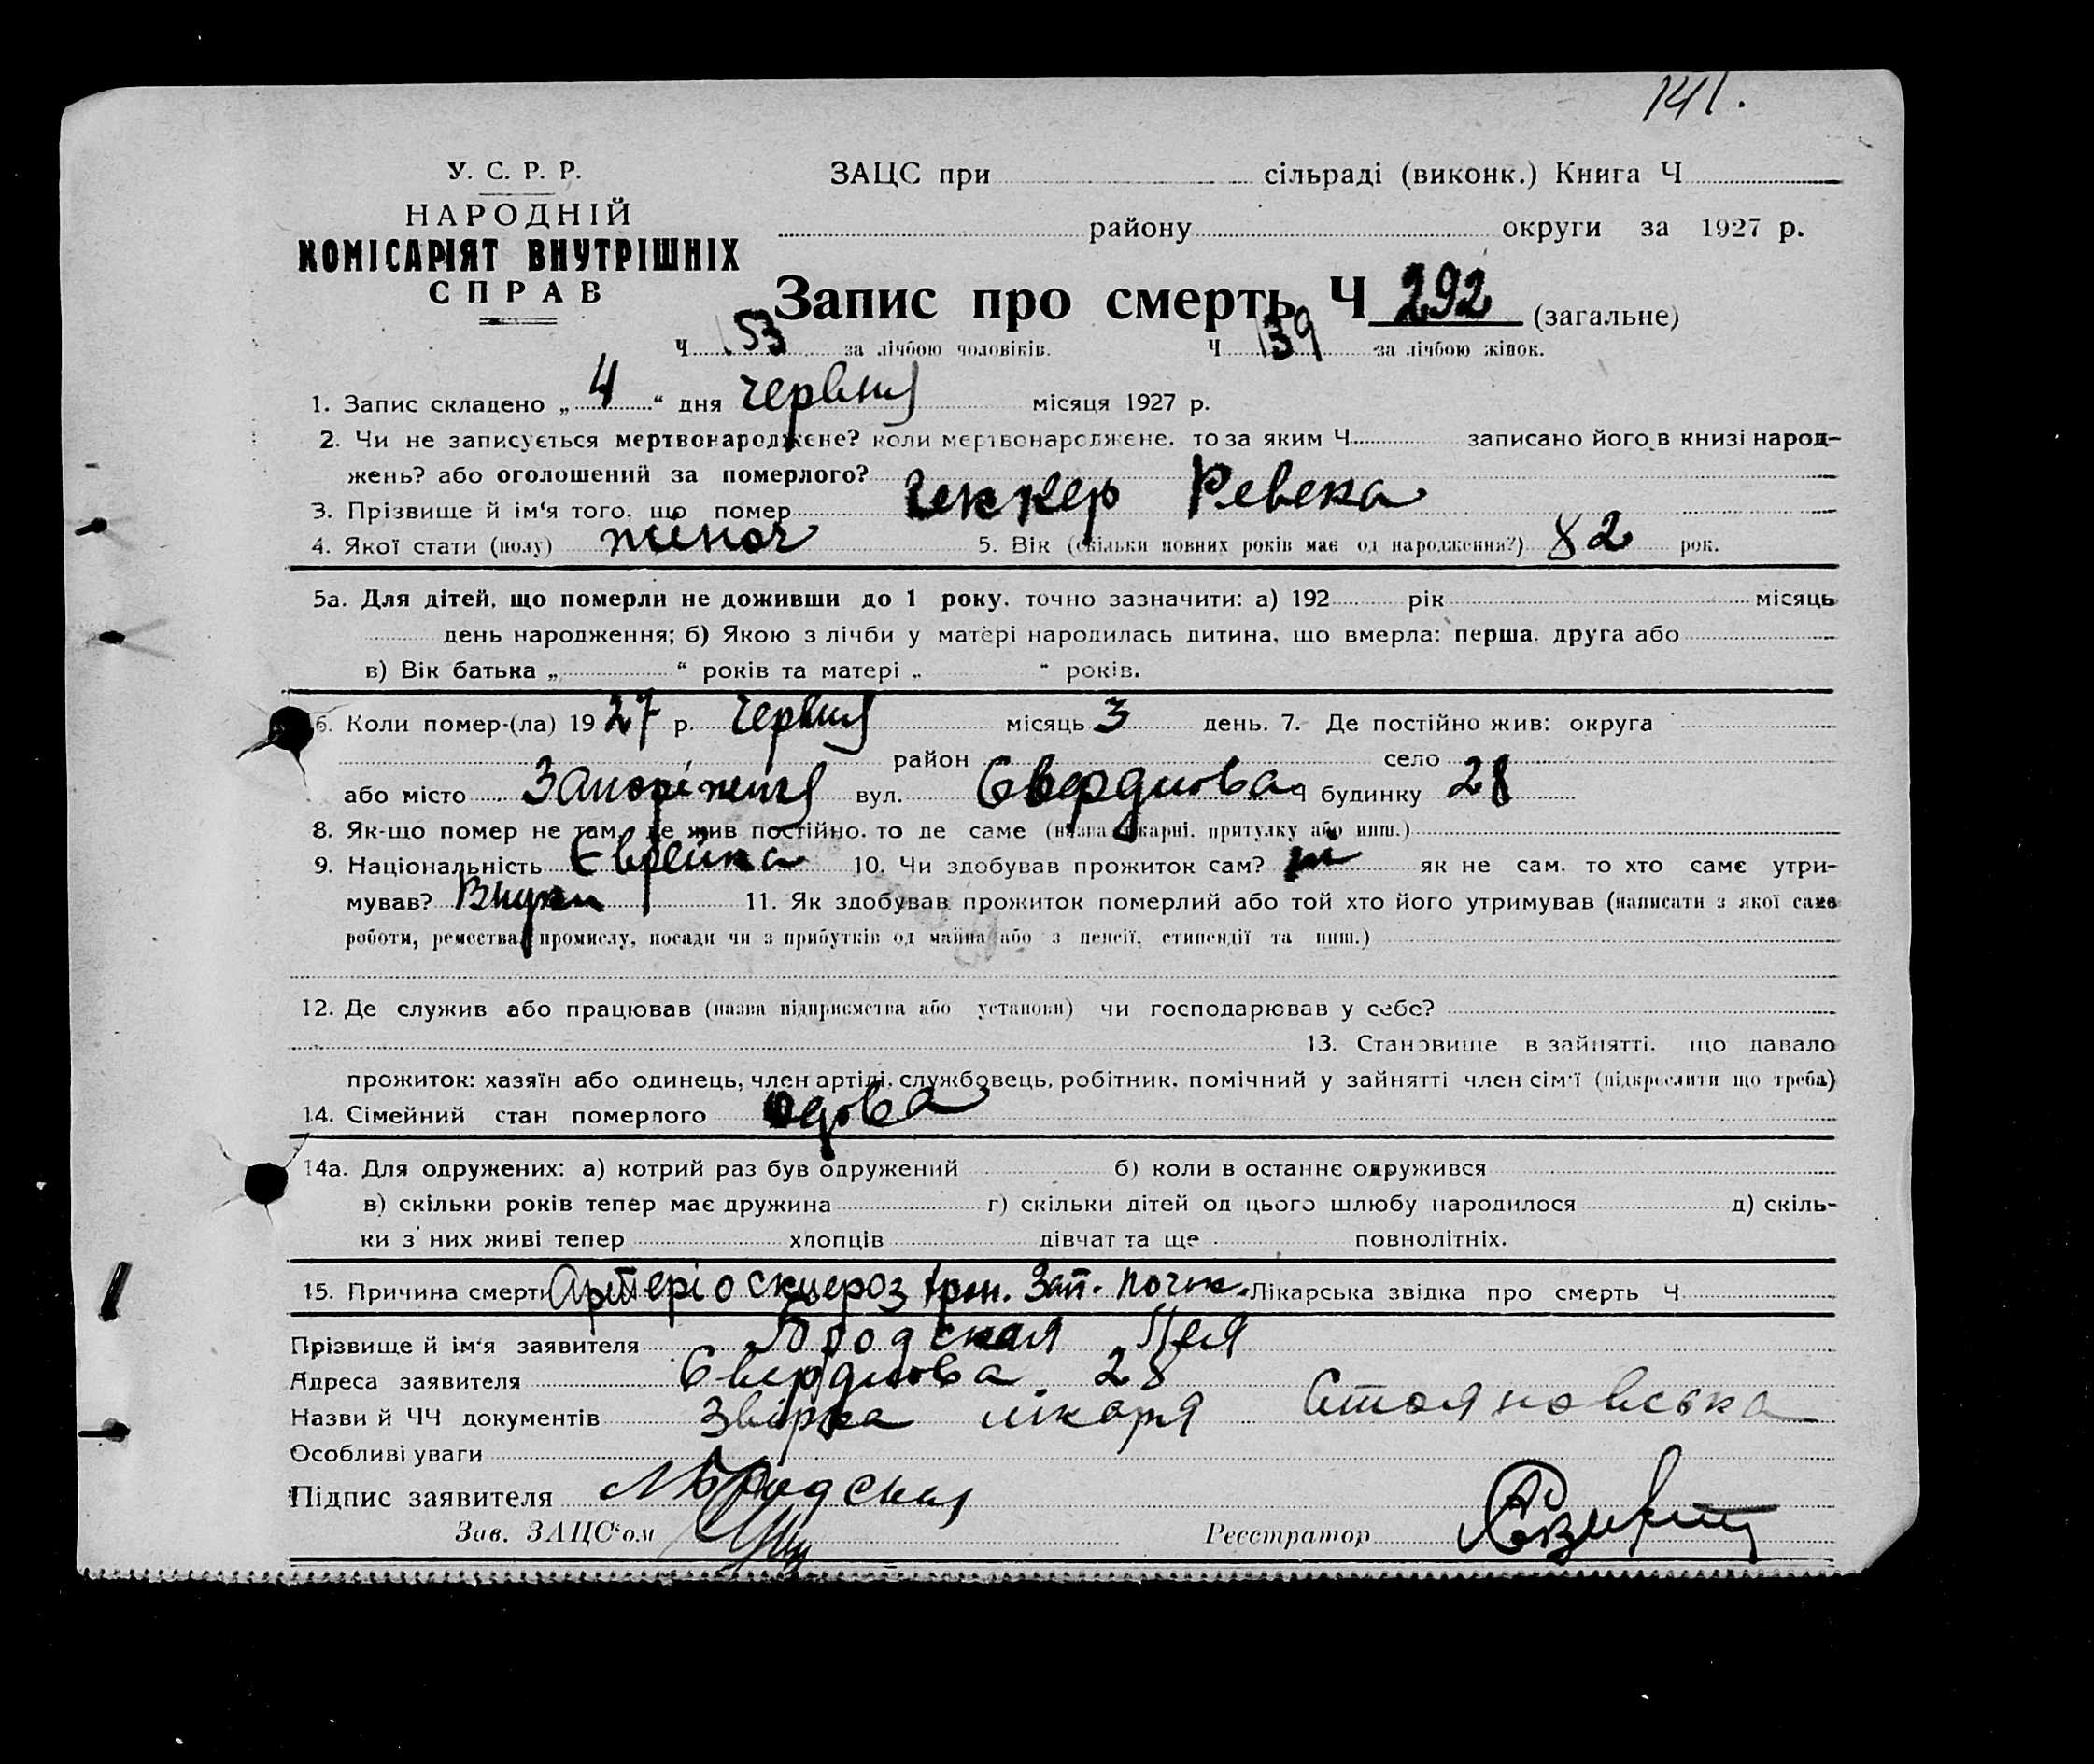 141.
У. С. Р. Р.
НАРОДНІЙ
КОМІСАРІЯТ ВНУТРІШНІХ
СПРАВ
ЗАЦС при сільраді (виконк.) Книга Ч
району округи за 1927 р.
Запис про смерть Ч 292 (загальне)
Ч 153 за лічбою чоловіків. Ч 139 за лічбою жінок.
1. Запис складено „ 4 “ дня червня місяця 1927 р.
2. Чи не записується мертвонароджене? коли мертвонароджене, то за яким Ч записано його в книзі народ-
жень? або оголошений за померлого?
3. Прізвище й ім‘я того, що помер Геккер Ревека
4. Якої стати (полу) жіноч 5. Вік (скільки повних років має од народження?) 82 рок.
5а. Для дітей, що померли не доживши до 1 року, точно зазначити: а) 192 рік місяць
день народження; б) Якою з лічби у матері народилась дитина, що вмерла: перша, друга або
в) Вік батька „ “ років та матері „ “ років.
6. Коли помер-(ла) 1927 р. червня місяць 3 день. 7. Де постійно жив: округа
район село
або місто Запоріжжя вул. Свердлова Ч будинку 28
8. Як-що помер не там, де жив постійно, то де саме (назва лікарні, притулку або инш.)
9. Національність Єврейка 10. Чи здобував прожиток сам? ні як не сам, то хто саме утри-
мував? Внуки 11. Як здобував прожиток померлий або той хто його утримував (написати з якої саме
роботи, ремества, промислу, посади чи з прибутків од майна або з пенсії, стипендії та инш.)
12. Де служив або працював (назва підприємства або установи) чи господарював у себе?
13. Становище в зайнятті, що давало
прожиток: хазяїн або одинець, член артілі, службовець, робітник, помічний у зайнятті член сім‘ї (підкреслити що треба)
14. Сімейний стан померлого вдова
14а. Для одружених: а) котрий раз був одружений б) коли в останнє одружився
в) скільки років тепер має дружина г) скільки дітей од цього шлюбу народилося д) скіль-
ки з них живі тепер хлопців дівчат та ще повнолітніх.
15. Причина смерти Артеріосклероз хрон. Зап. почок. Лікарська звідка про смерть Ч
Прізвище й ім‘я заявителя Бродская
Адреса заявителя Свердлова 28
Назви й ЧЧ документів Звірка лікаря Стояновська
Особливі уваги
Підпис заявителя Бродская
Зав. ЗАЦС‘ом
Реєстратор